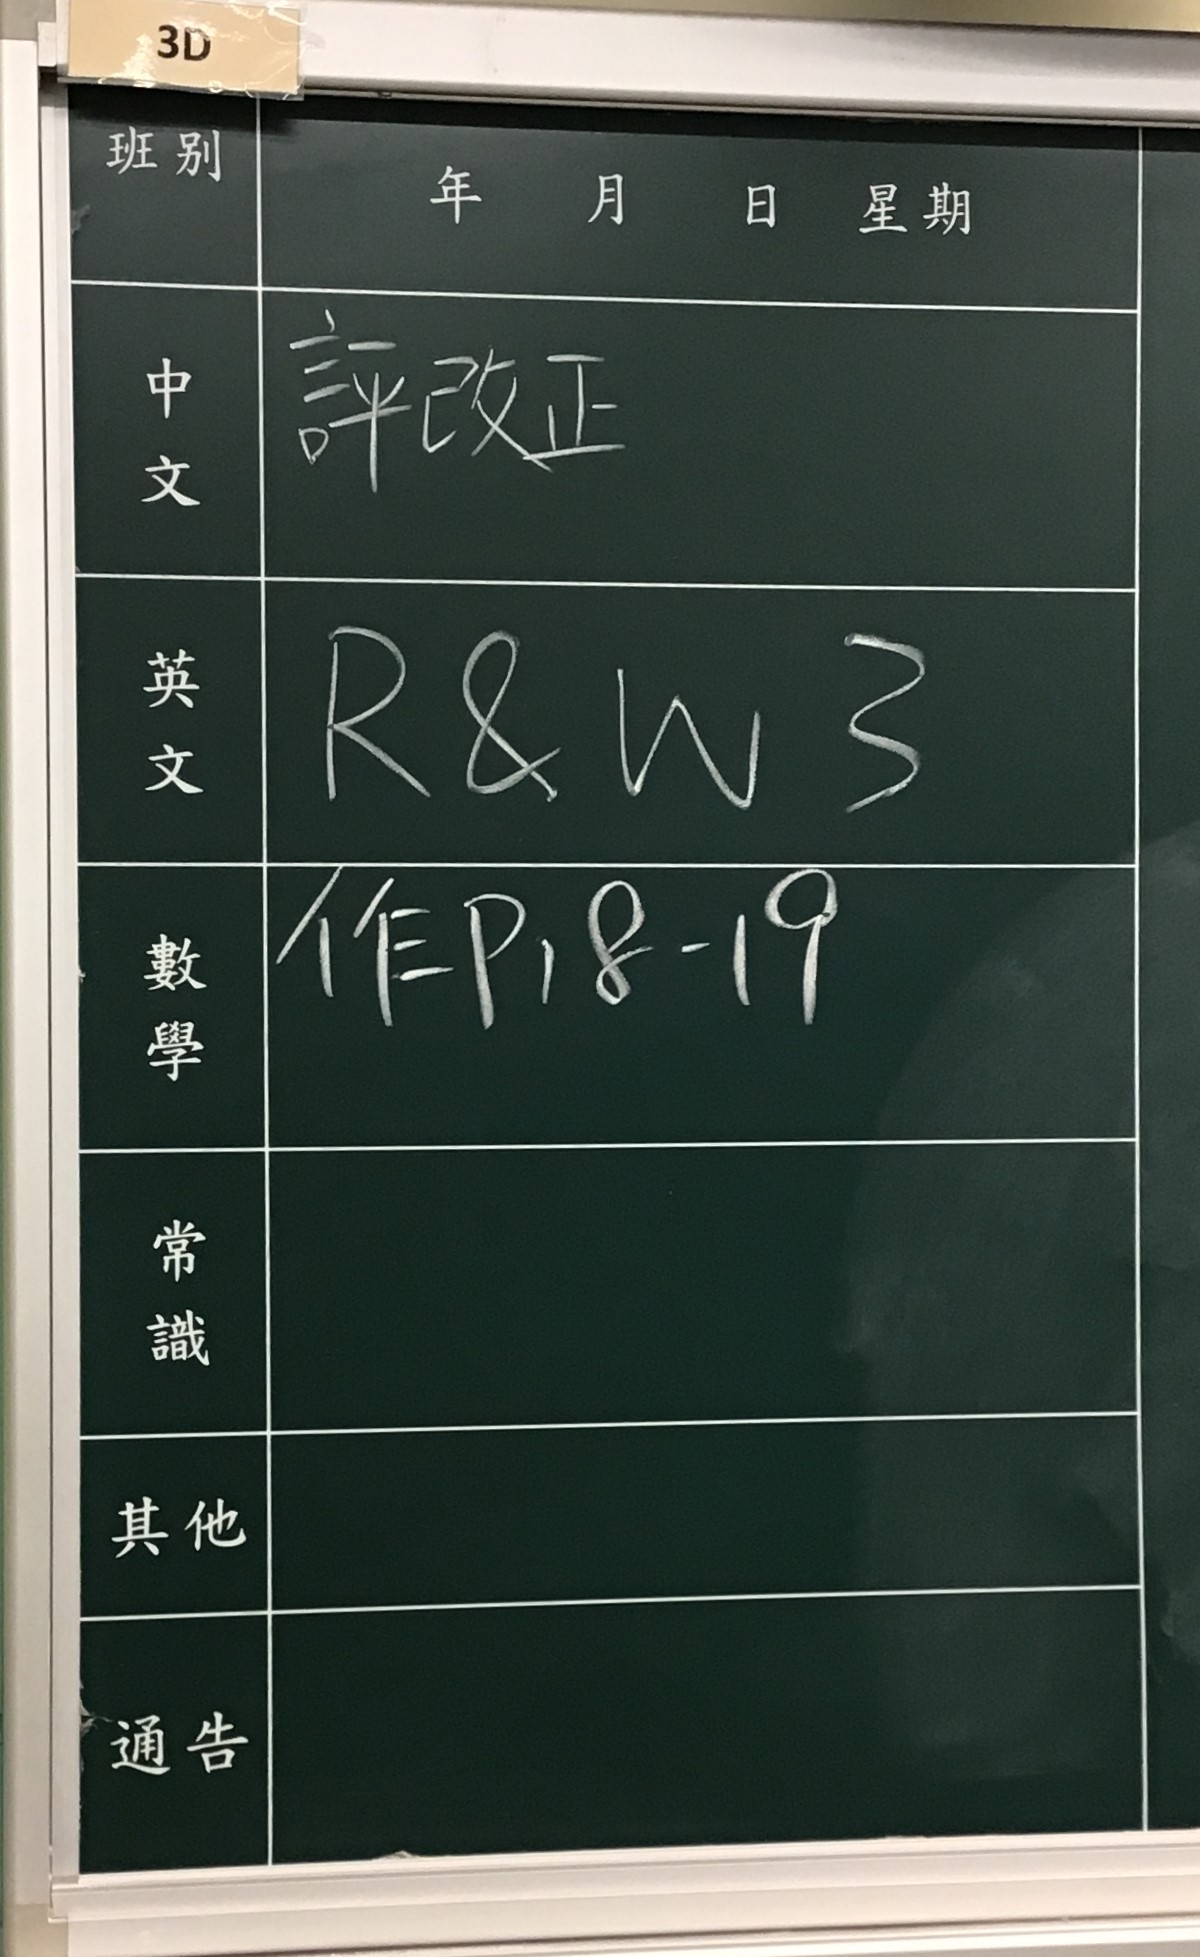 3D
班別
年 月 日 星期
中文
評改正
英文
R & W 3
數學
作P.18-19
常識
其他
通告